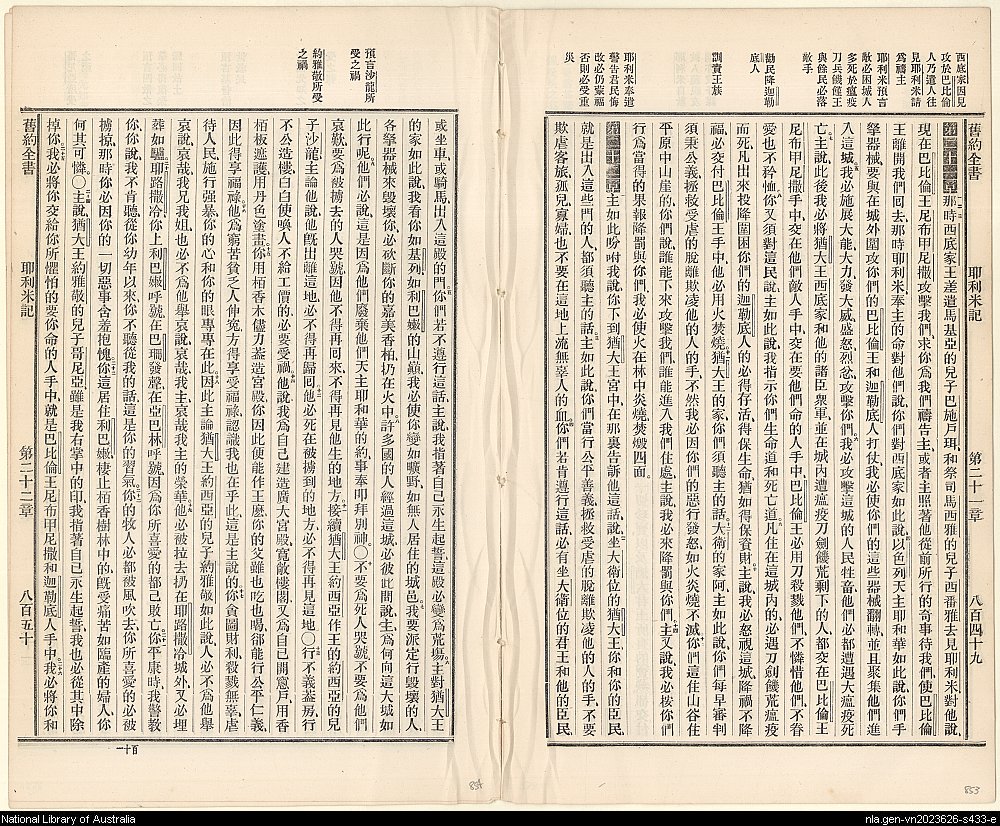 西底家因見
攻於巴比倫
人乃遣人往
見耶利米請
爲禱主
耶利米預言
敵必困城人
多死於瘟疫
刀兵饑僅王
與餘民必落
敵手
勸民降迦勒
底人
訓責王族
耶利米奉遣
警吿君民侮
改必仍蒙福
否則必受重
災
舊約全書 耶利米記 第二十一章 八百四十九
第二十一章 那時西底家王差遣馬基亞的兒子巴施戶珥和祭司馬西雅的兒子西番雅去見耶利米對他說、
現在巴比倫王尼布甲尼撒攻擊我們求你爲我們禱告主或者主照著他從前所行的奇事待我們使巴比倫
王離開我們回去那時耶利米奉主的命對他們說你們對西底家如此說以色列天主耶和華如此說你們手
拏器械要與在城外圍攻你們的巴比倫王和迦勒底人打仗我必使你們的這些器械翻轉並且聚集他們進
入這城我必施展大能大力發大威盛怒烈忿攻擊你們我必攻擊這城的人民牲畜他們必都遭遇大瘟疫死
亡主說此後我必將猶大王西底家和他的諸臣衆軍並在城內遭瘟疫刀劍饑荒剩下的人都交在巴比倫王
尼布甲尼撒手中交在他們敵人手中交在要他們命的人手中巴比倫王必用刀殺戮他們不憐惜他們不眷
愛他也不矜恤你又須對這民說主如此說我指示你們生命道和死亡道凡住在這城內的必遇刀劍饑荒瘟疫
而死凡出來投降圍困你們的迦勒底人的必得存活得保生命猶如得保資財主說我必怒視這城降禍不降
福必交付巴比倫王手中他必用火焚燒猶大王的家你們須聽主的話大衛的家阿主如此說你們每早審判
須秉公義拯救受虐的脫離欺凌他的人的手不然我必因你們的惡行發怒如火炎燒不滅你們這住山谷往
平原中山崖的你們說誰能下來攻擊我們誰能進入我們住處主說我必來降罰與你們主又說我必按你們
行爲當得的果報降罰與你們我必使火在林中炎燒焚燬四面
第二十二章 主如此吩咐我說你下到猶大王宮中在那裏告訴他這話說坐大衛位的猶大王你和你的臣民
就是出入這些門的人都須聽主的話主如此說你們當行公平善義拯救受虐的脫離欺凌他的人的手不要
欺虐客旅孤兒寡婦也不要在這地上流無辜人的血你們若肯遵行這話必有坐大衛位的君王和他的臣民
預言沙龍所
受之禍
約雅敬所受
之禍
或坐車或騎馬出入這殿的門你們若不遵行這話主說我指著自己永生起誓這殿必變爲荒塲主對猶大王
的家如此說我看你如基列如利巴嫩的山巔我必使你變如曠野如無人居住的城邑我要派定行毀壞的人
各拏器械來毀壞你必砍斷你的嘉美香柏扔在火中許多國的人經過這城必彼此問說主爲何向這大城如
此行呢他們必說這是因爲他們廢棄他們天主耶和華的約事奉叩拜別神〇不要爲死人哭號不要爲他們
哀慟要爲被擄去的人哭號因他不得再回來不得再見他生的地方接續猶大王約西亞作王的約西亞的兒
子沙龍主論他說他旣出離這地必不得再歸回他必死在被擄到的地方必不得再見這地〇行不義葢房行
不公造樓白白使喚人不給工價的必要受禍他說我爲自己建造廣大宮殿寬敞樓閣又爲自己開窻戶用香
栢板遮護用丹色塗畫你用栢香木儘力葢造宮殿你因此便能作王麼你的父雖也吃也喝卻能行公平仁義
因此得享福祿他爲窮苦貧乏人伸寃方得享受福祿認識我也在乎此這是主說的你貪圖財利殺戮無辜虐
待人民施行强暴你的心和你的眼專專在此因此主論猶大王約西亞的兒子約雅敬如此說人必不爲他舉
哀說哀哉我兄我姐也必不爲他舉哀說哀哉我主哀哉我主的榮華他必被拉去扔在耶路撒冷城外又必埋
葬如驢耶路撒冷你上利巴嫩呼號在巴珊發聲在亞巴林呼號因爲你所喜愛的都已敗亡你平康時我警教
你你說我不肯聽從你幼年以來你不聽從我的話這是你的習氣你的牧人必都被風吹去你所喜愛的必被
擄掠那時你必因你的一切惡事含羞抱愧你這居住利巴嫩棲止栢香樹林中的旣受痛苦如臨產的婦人你
何其可憐〇主說猶大王約雅敬的兒子哥尼亞雖是我右掌中的印我指著自己永生起誓我也必從其中除
掉你我必將你交給你所懼怕的要你命的人手中就是巴比倫王尼布甲尼撒和迦勒底人手中我必將你和
舊約全書 耶利米記 第二十二章 八百五十
百十一
854
853
National Library of Australia
nla.gen-vn2023626-s433-e